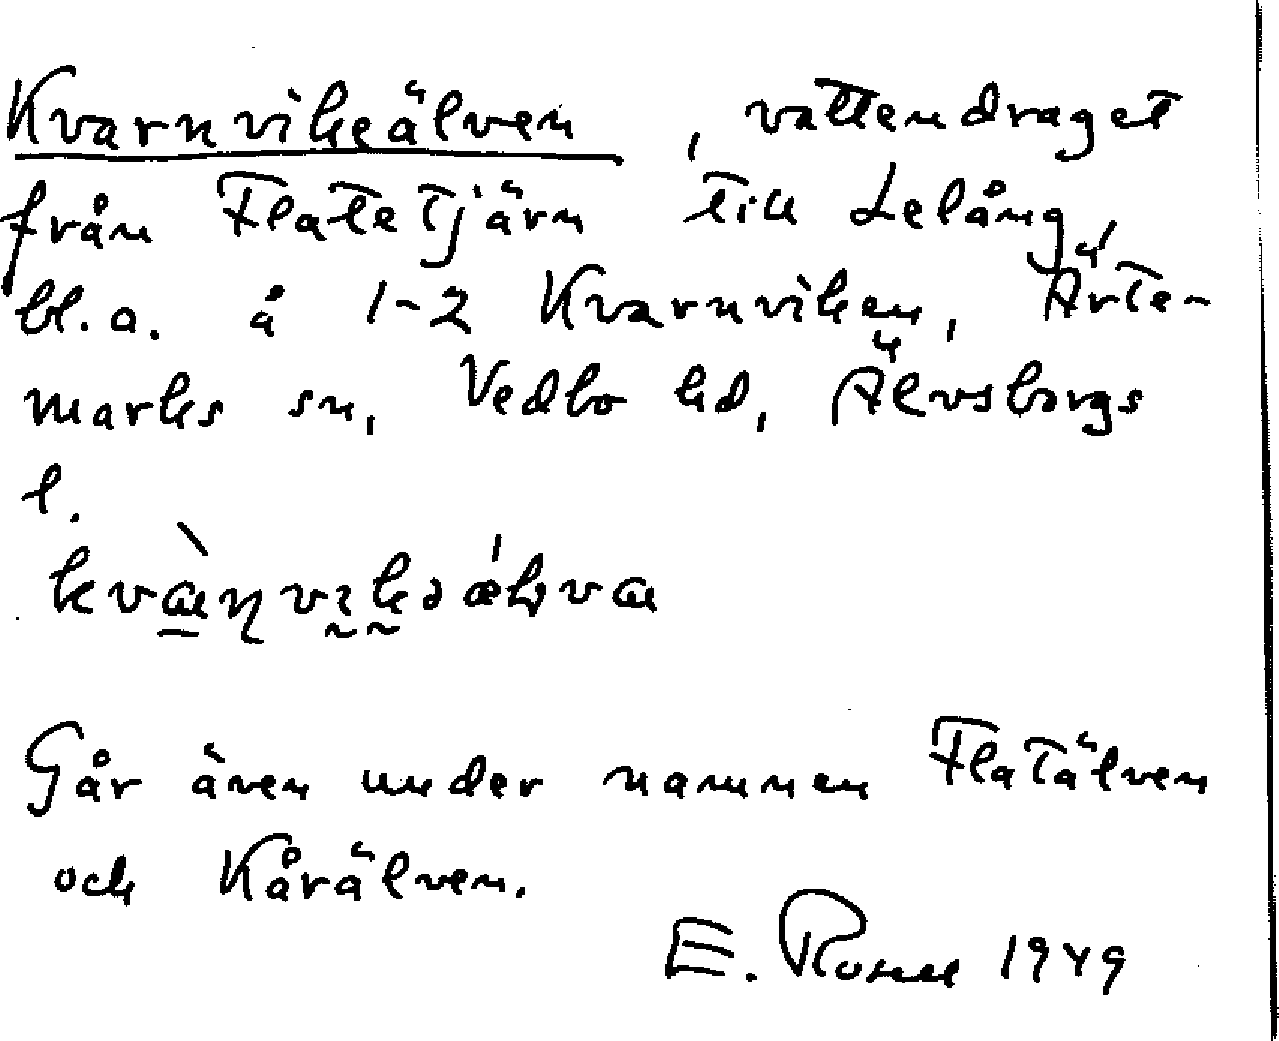 Kvarnvikeälven, vattendraget
från Flatetjärn till Lelång,
bl.a. å 1-2 Kvarnviken, Ärte-
marks sn, Vedbo hd, Älvsborgs
l.
Går även under namnen Flatälven
och Kårälven.
E. 1949